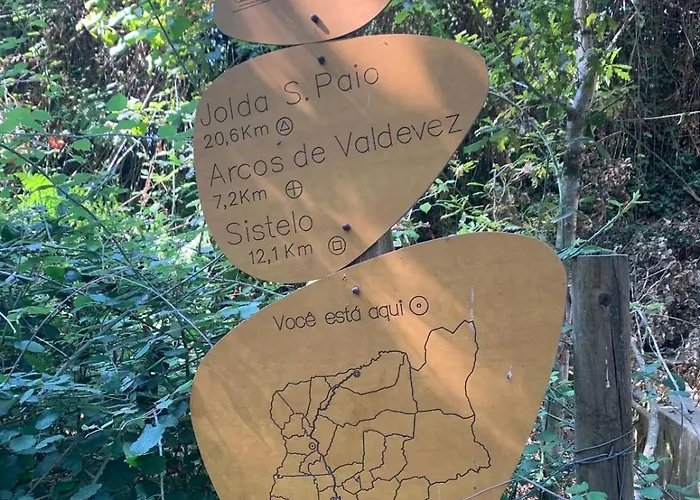 Jolda S. Paio
20,6Km
Arcos de Valdevez
7,2Km
Sistelo
12,1 Km
Você está aqui